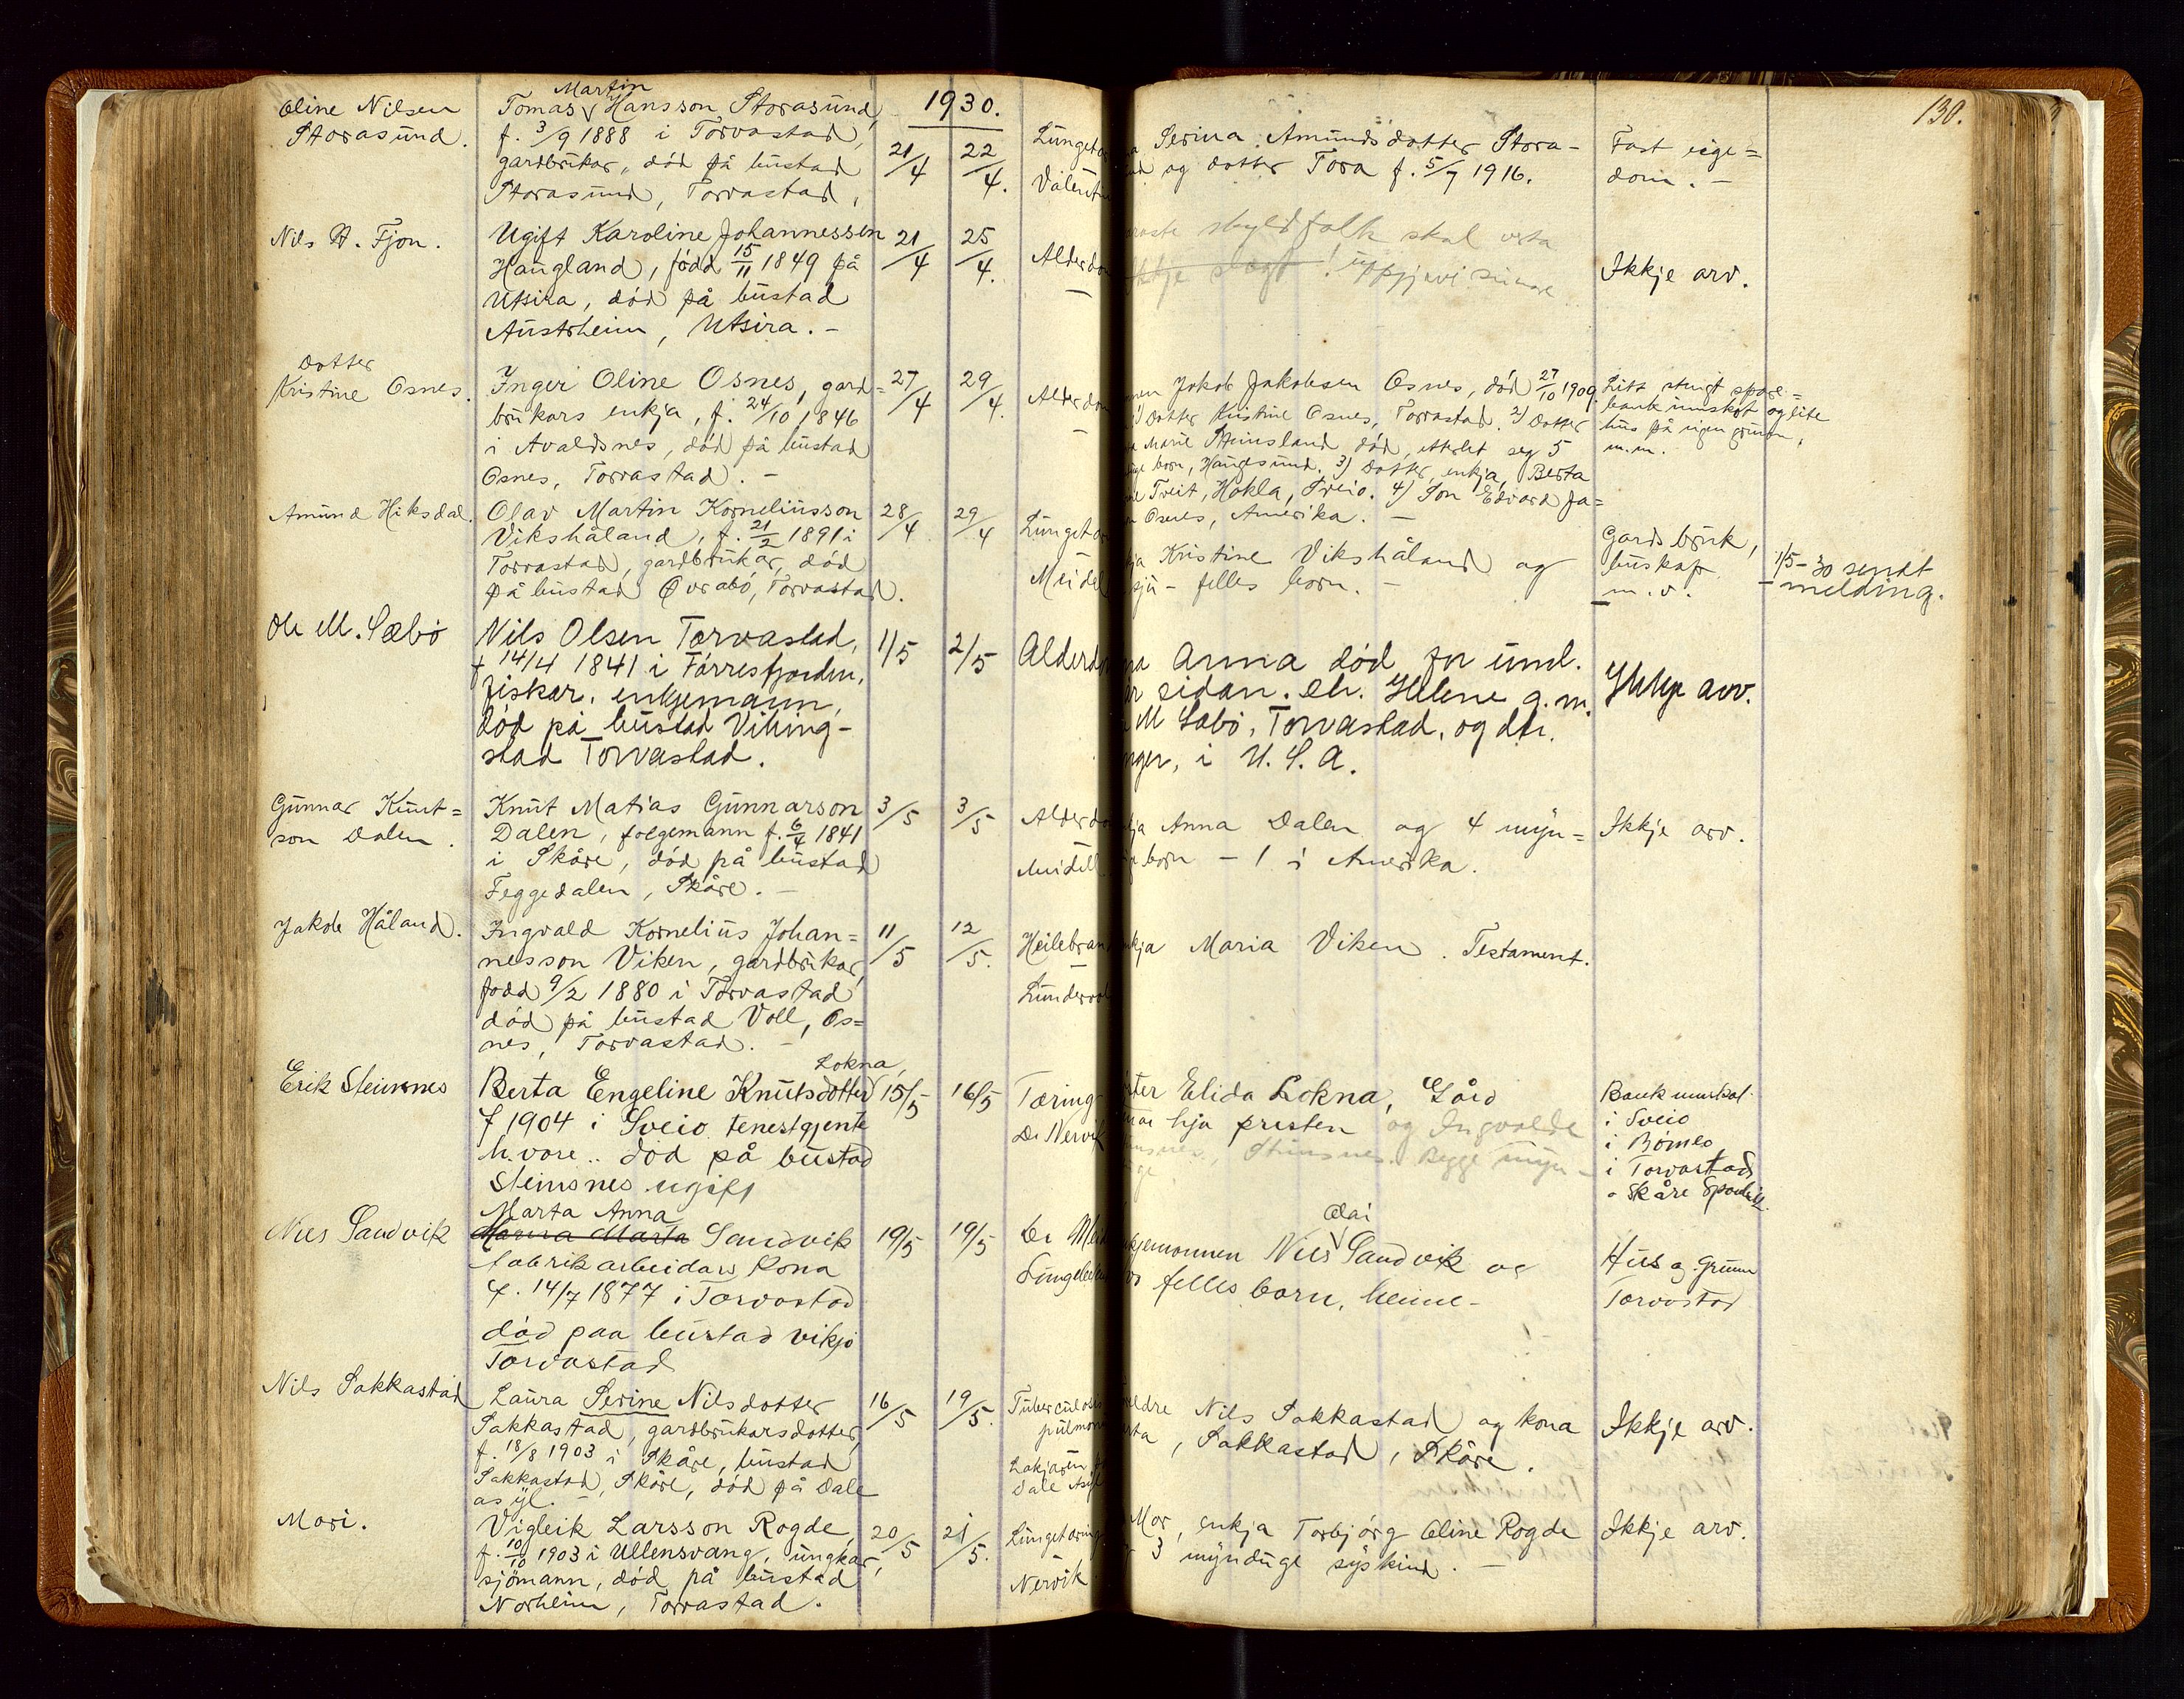 130.
1930.
Oline Nilsen
Storasund.
Martin
Tomas Hansson Storasund,
f. 3/9 1888 i Torvastad,
gardbrukar, død på bustad
Storasund, Torvastad,
21/4
22/4.
Serina Amundsdotter Stora-
og dotter Tora f. 5/7 1916.
Fast eige=
dom. -
Nils H. Fjon.
Ugift Karoline Johannessen
Haugland, fødd 15/11 1849 på
Utsira, død på bustad
Austrheim, Utsira. -
21/4
25/4.
skyldfolk skal
Ikkje arv.
Dotter
Kristine Osnes.
Inger Oline Osnes, gard=
brukars enkja, f. 24/10 1846
i Avaldsnes, død på bustad
Osnes, Torvastad. -
27/4
29/4.
Jakob Jakobsen Osnes, død 27/10 1909.
1) Dotter Kristine Osnes, Torvastad. 2) Dotter
Marie Steinsland død, etterlet seg 5
born, Haugesund. 3) Dotter, enkja, Berta
Treit, Hokla, Sveio. 4) Son Edvard Ja=
Osnes, Amerika. -
Litt stengt spare=
bank innskot og lite
hus på eigen grunn,
m.m.
Amund Hiksdal.
Olav Martin Korneliusson
Vikshåland, f. 21/2 1891 i
Torvastad, gardbrukar, død
på bustad Øvrabø, Torvastad.
28/4
29/4
Kristine Vikshåland og
sju - felles born. -
Gardsbruk,
buskap
m.v.
1/5-30 sendt
melding.
Ole M. Sæbø
Nils Olsen Torvastad,
f 14/4 1841 i Førresfjorden,
fiskar, enkjemann,
død på bustad Viking-
stad Torvastad.
1/5
2/5
Anna død for uml.
sidan. Helene g.m.
M Sæbø, Torvastad, og dtr.
i U.S.A.
Ikkje arv.
Gunnar Knut=
son Dalen.
Knut Matias Gunnarson
Dalen, folgemann f. 6/4 1841
i Skåre, død på bustad
Feggedalen, Skåre. -
3/5
3/5
Meidell
Anna Dalen og 4 myn=
born - 1 i Amerika.
Ikkje arv.
Jakob Håland.
Ingvald Kornelius Johan=
nesson Viken, gardbrukar,
fødd 9/2 1880 i Torvastad
død på bustad Voll, Os=
nes, Torvastad. -
11/5
12/5.
Maria Viken. Testament.
Erik Steinsnes
Lokna,
Berta Engeline Knutsdotter
f 1904 i Sveio tenestgjente
h.vore.. død på bustad
Steinsnes ugift
15/5
16/5
Tæring
Dr Nervik
Elida Lokna,
hja presten og Ingvalde
Steinsnes. Begge myn-
Bank innskot
i Sveio
i Bømlo
i Torvastad
Skåre
Nils Sandvik
Marta Anna
Sandvik
fabrikarbeidars kona
f. 14/7 1877 i Torvastad
død paa bustad Vikjo
Torvastad
19/5
19/5
Olai
Nils Sandvik og
felles born, heime-
Hus og grunn
Torvastad
Nils Sakkastad
Laura Serine Nilsdotter
Sakkastad, gardbrukarsdotter,
f. 18/8 1903 i Skåre, bustad
Sakkastad, Skåre, død på Dale
asyl. -
16/5
19/5.
Dale
Nils Sakkastad og kona
Sakkastad, Skåre.
Ikkje arv.
Mori.
Vigleik Larsson Rogde,
f. 10/10 1903 i Ullensvang, ungkar,
sjømann, død på bustad
Norheim, Torvastad.
20/5
21/5.
Lungetæring
Nervik
Mor, enkja Torbjørg Oline Rogde
3 myndige syskind. -
Ikkje arv.